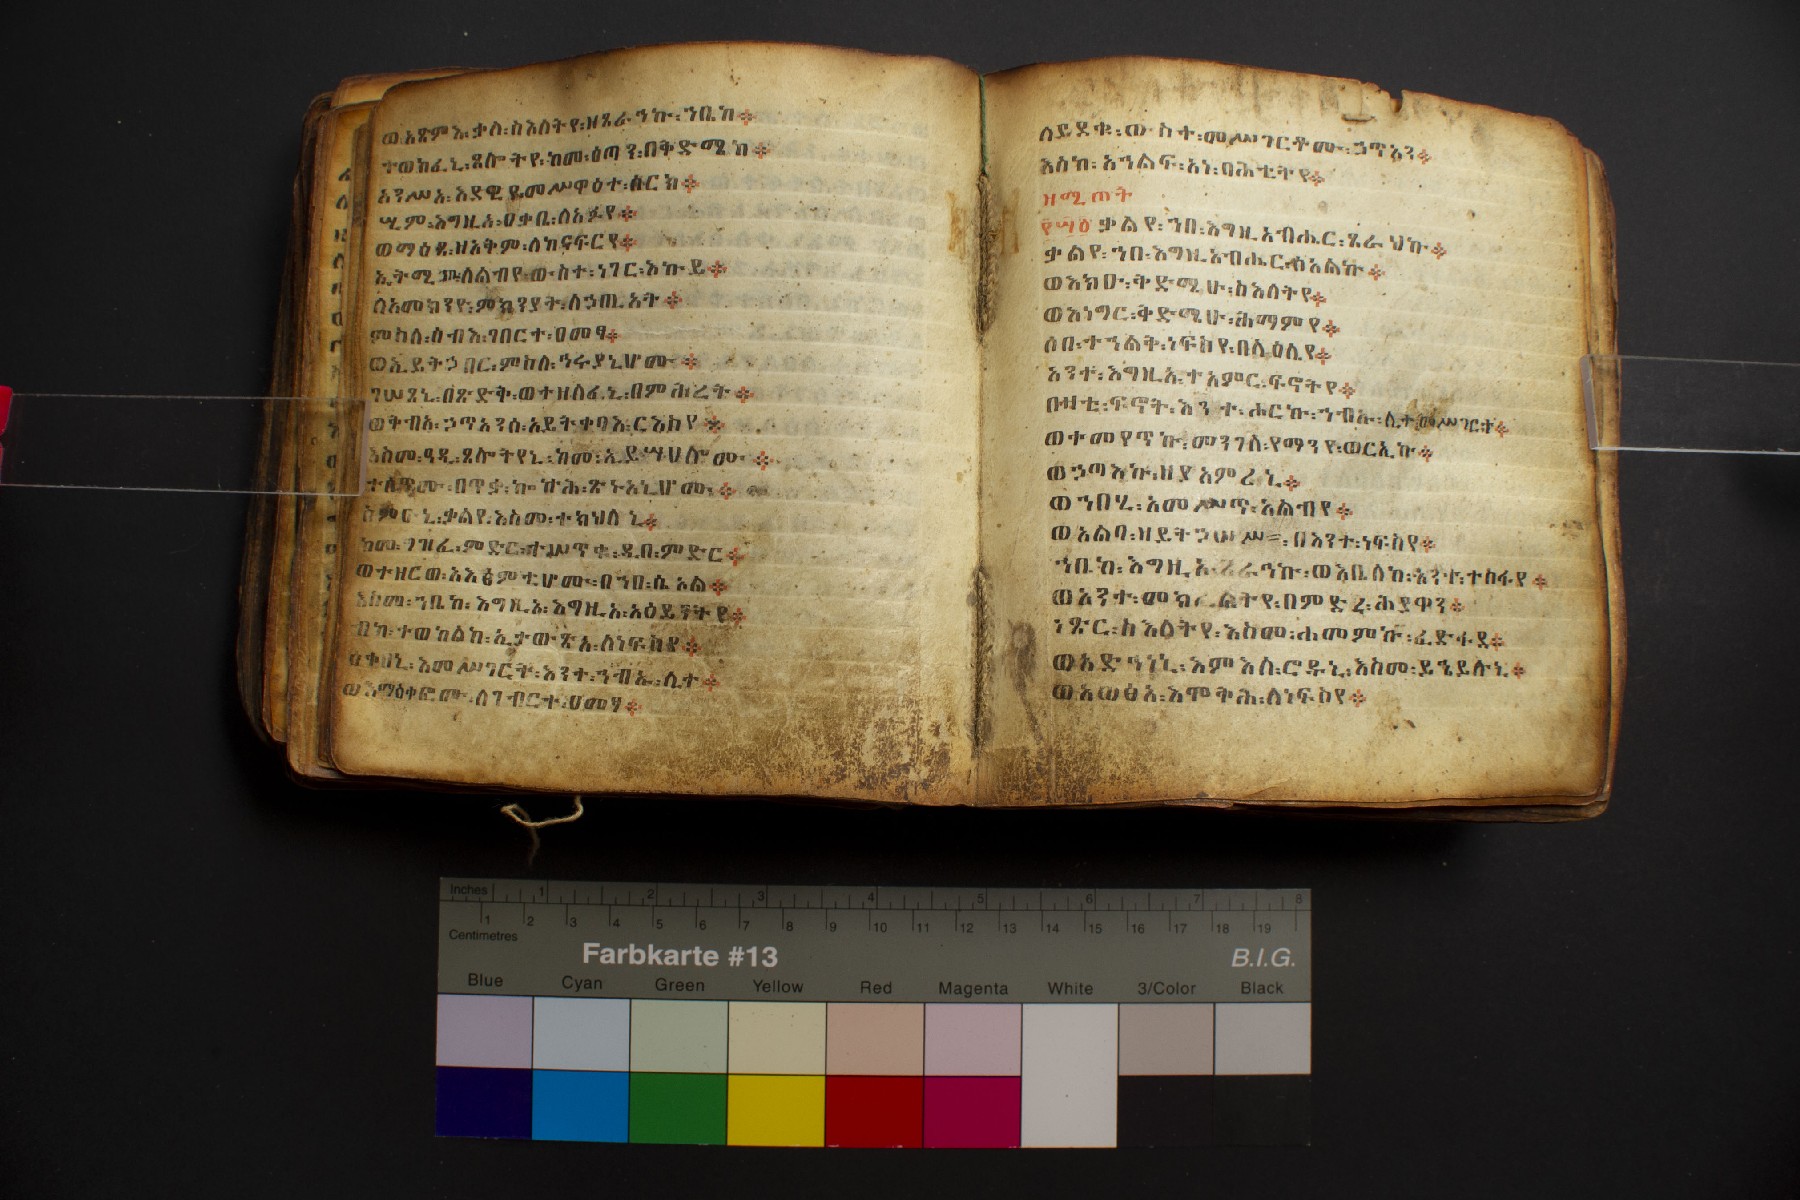 ወአጽምእ፡ቃለ፡ስእለትየ፡ዘጸራኅኩ፡ኀቤከ፨
ተወከፈኒ፡ጸሎትየ፡ከመ፡ዕጣን፡በቅድሜከ፨
አንሥአ፡እደዊየ፡መሥዋዕተ፡ሰርክ፨
ሢም፡እግዚኦ፡ዐቃቤ፡ለአፉየ፨
ወማዕጸ፡ዘአቅም፡ለከናፍርየ፨
ኢትሚጣ፡ለልብየ፡ውስተ፡ነገር፡እኩይ፨
ለአመክንዮ፡ምክንያት፡ለኃጢአት፨
ምስለ፡ሰብእ፡ገበርተ፡ዐመፃ፨
ወኢይትኃበር፡ምስለ፡ኅሩያኒሆሙ፨
ገሥጸኒ፡በጽድቅ፡ወተዘለፈኒ፡በምሕረት፨
ወቅብአ፡ኃጥአንሰ፡አይትቀባእ፡ርእስየ፨
እስመ፡ዓዲ፡ጸሎትየኒ፡ከመ፡ኢይሣሀሎሙ፨
ተሰጥሙ፡በጥቃ፡ኰኵሕ፡ጽኑዓኒሆሙ፨
ስምዑኒ፡ቃልየ፡እስመ፡ተክህለኒ፨
ከመ፡ግዝፈ፡ምድር፡ተሠጥቀ፡ዲበ፡ምድር፨
ወተዘርወ፡አእፅምቲሆሙ፡በኀበ፡ሲኦል፨
እስመ፡ኀቤከ፡እግዚኦ፡እግዚኦ፡አዕይንትየ፨
ብከ፡ተወከልኩ፡ኢታውጽኣ፡ለነፍስየ፨
ዕቀበኒ፡እመሥገርት፡እንተ፡ኀብኡ፡ሊተ፨
ወእማዕቀፎሙ፡ለገብርተ፡ዐመፃ፨
ለይደቁ፡ውስተ፡መሥገርቶሙ፡ኃጥኣን፨
እስከ፡አኀልፍ፡አነ፡ባሕቲትየ፨
ዘሚጠት
፻፵፩ ቃልየ፡ኀበ፡እግዚአብሔር፡ጸራህኩ፨
ቃልየ፡ኀበ፡እግዚአብሔር፡ሰአልኩ፨
ወእክዑ፡ቅድሜሁ፡ስእለትየ፨
ወእነግር፡ቅድሜሁ፡ሕማምየ፨
ሶበ፡ተኀልቅ፡ነፍስየ፡በላዕሌየ፨
አንተ፡እግዚኦ፡ተአምር፡ፍኖትየ፨
በዛቲ፡ፍኖት፡እንተ፡ሖርኩ፡ኀብኡ፡ሊተ፡መሥገርት፨
ወተመየጥኩ፡መንገለ፡የማንየ፡ወርኢኩ፨
ወኃጣእኩ፡ዘያአምረኒ፨
ወኀበሂ፡አመሥጥ፡አልብየ፨
ወአልቦ፡ዘይትኃሠሣ፡በእንተ፡ነፍስየ፨
ኀቤከ፡እግዚኦ፡ጸራኅኩ፡ወእቤለከ፡አንተ፡ተስፋየ፨
ወአንተ፡መክፈልትየ፡በምድረ፡ሕያዋን፨
ነጽር፡ስእለትየ፡እስመ፡ሐመምኩ፡ፈድፋደ፨
ወአድኅነኒ፡እምእለ፡ሮዱኒ፡እስመ፡ይኄይሉኒ፨
ወአውፅኣ፡እሞቅሕ፡ለነፍስየ፨
Inches 1 2 3 4 5 6 7 8
1 2 3 4 5 6 7 8 9 10 11 12 13 14 15 16 17 18 19
Centimetres
Farbkarte #13
B.I.G.
Blue Cyan Green Yellow Red Magenta White 3/Color Black